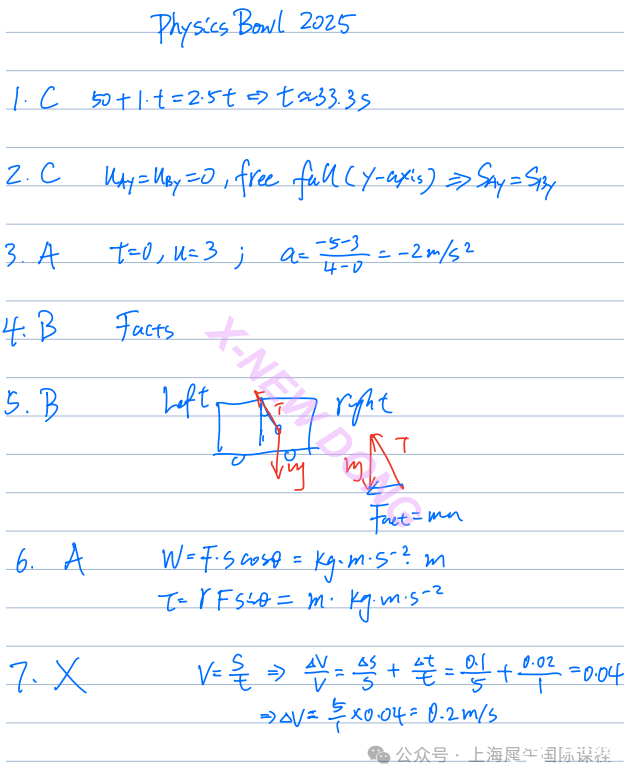 Physics Bowl 2025
1. C 50+1·t=2.5t ⇒ t≈33.3s
2. C u_Ay=u_By=0, free fall (y-axis) ⇒ S_Ay=S_By
3. A t=0, u=3 ; a= (-5-3)/(4-0) = -2m/s²
4. B Facts
5. B Left right
T T
mg mg
Fnet=ma
6. A W=F·s cosθ = kg·m·s⁻²·m
τ=rFsinθ = m· kg·m·s⁻²
7. X V= S/t ⇒ ΔV/V = Δs/s + Δt/t = 0.1/5 + 0.02/1 =0.04
⇒ΔV= 5/1 ×0.04= 0.2m/s
X-NEW DONG
公众号 · 上海犀牛国际课程